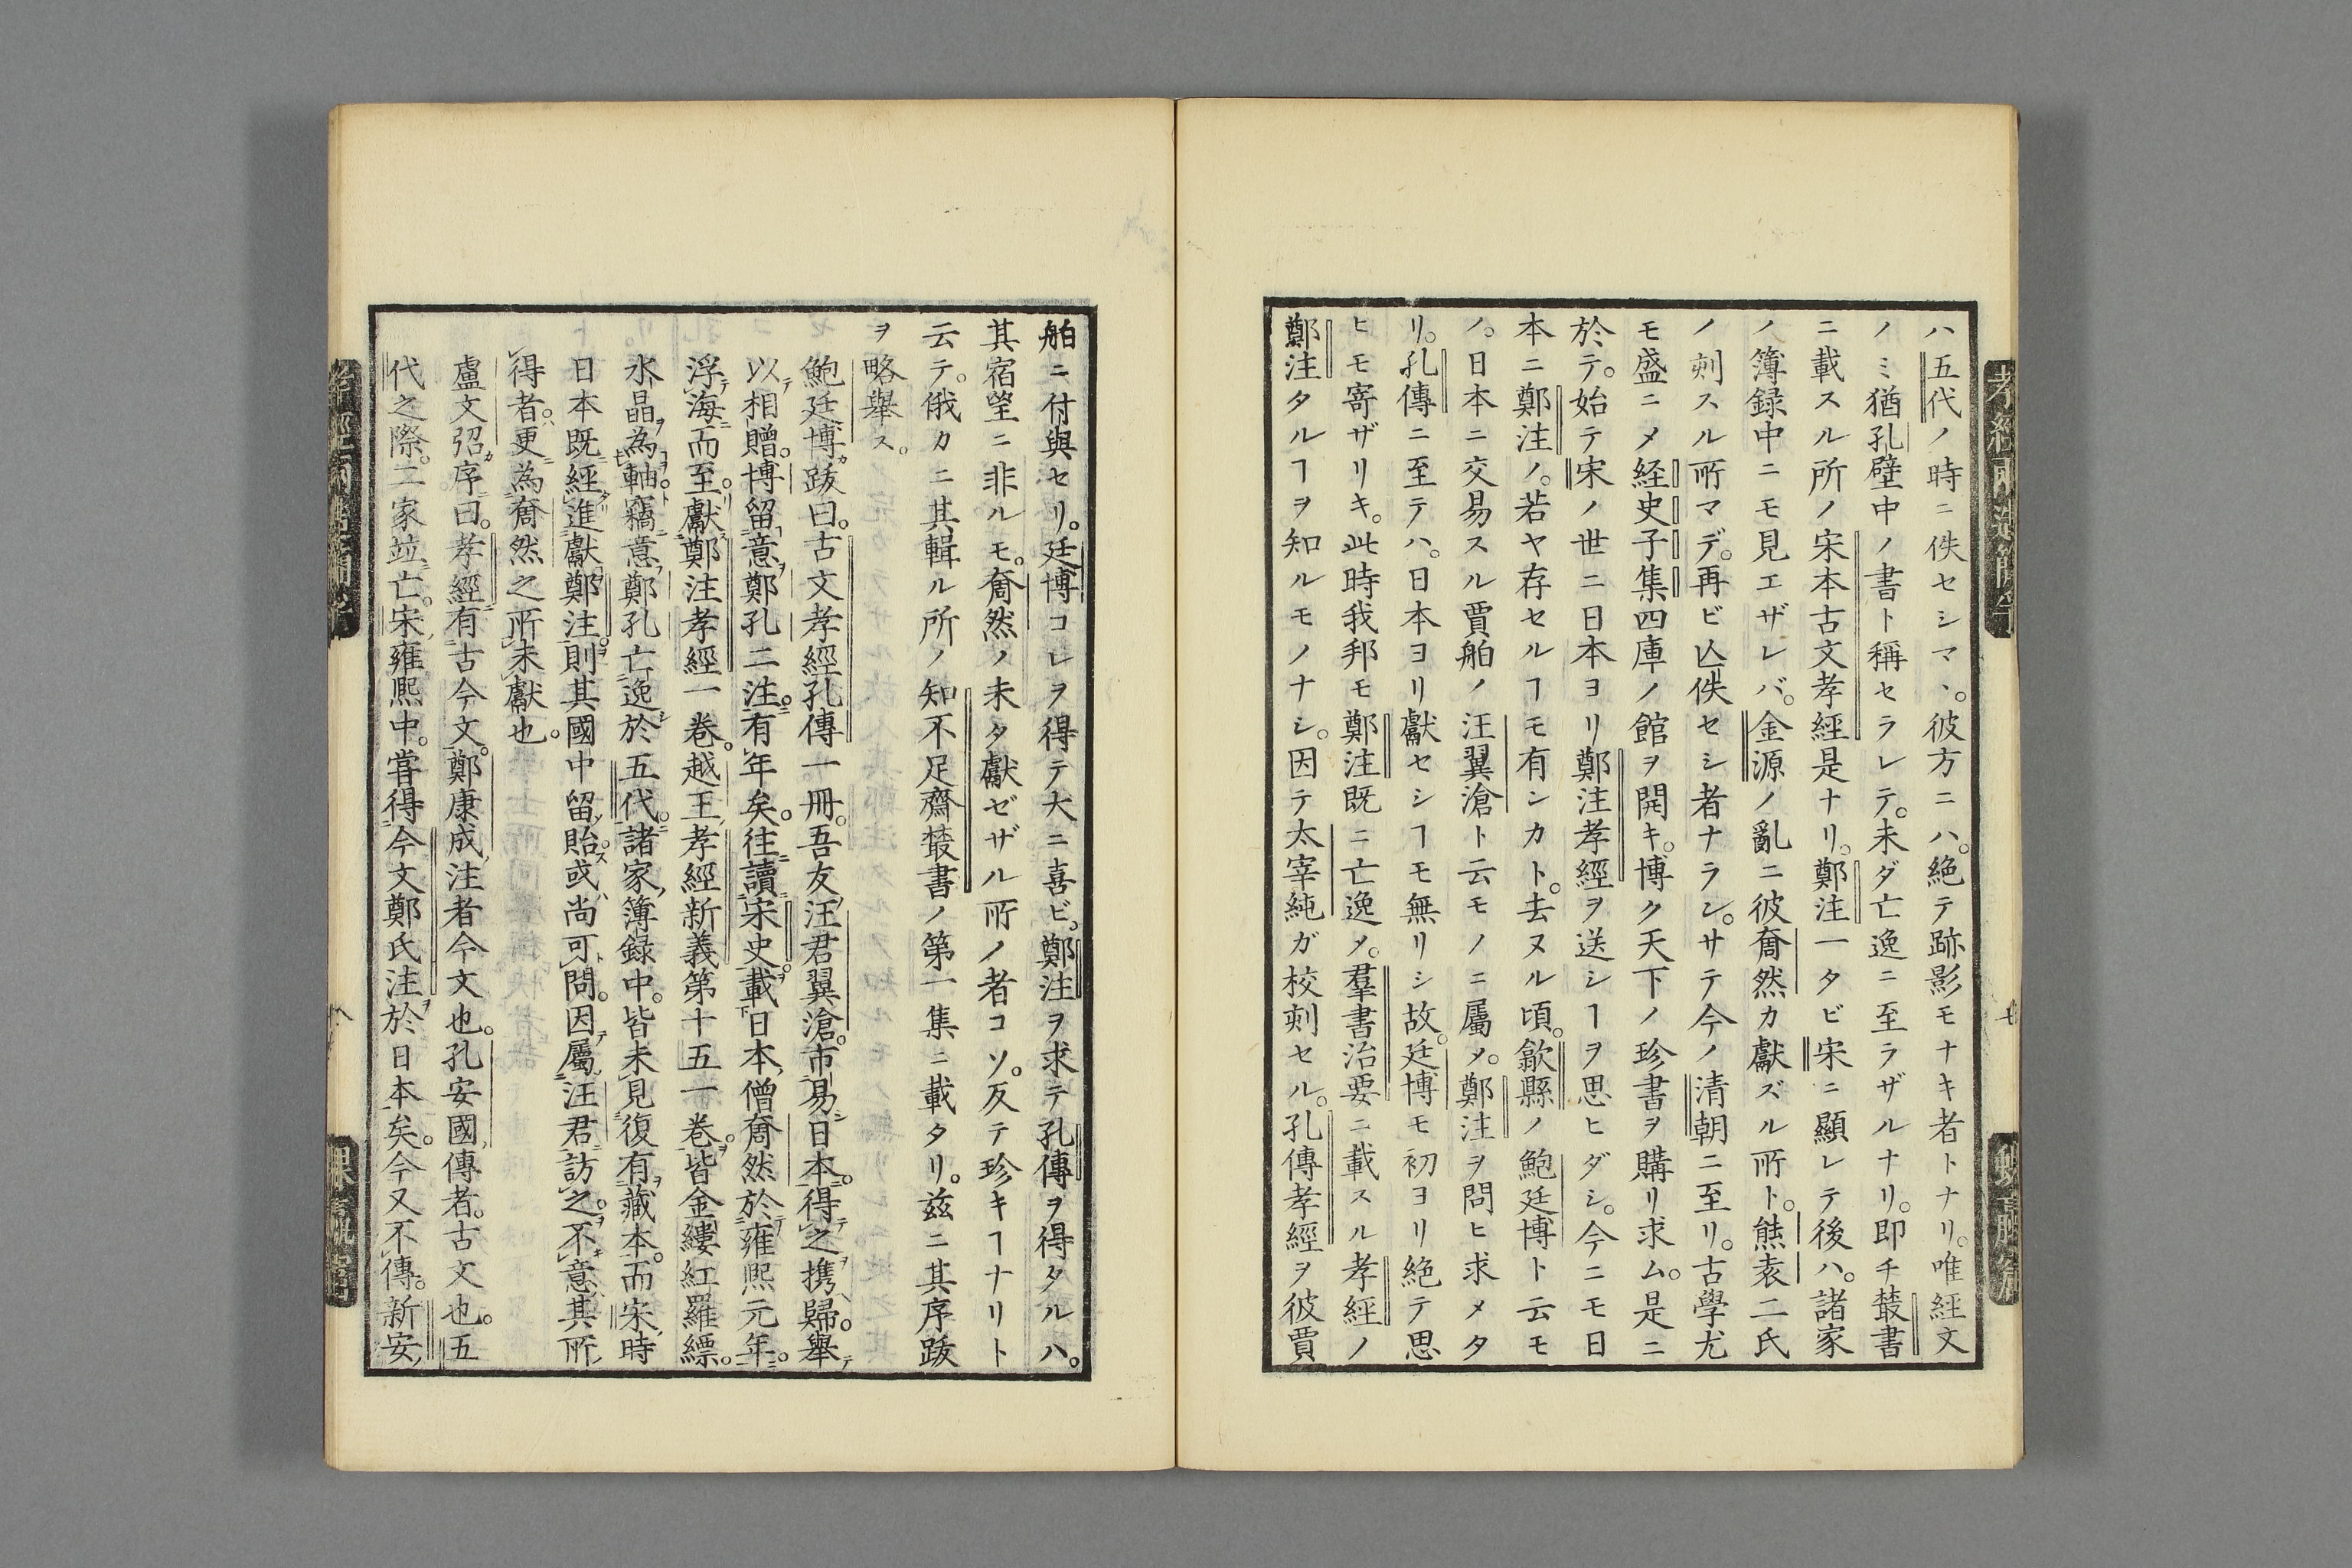 ハ五代ノ時ニ佚セシマヽ。彼方ニハ。絶テ跡影モナキ者トナリ。唯経文
ノミ猶孔壁中ノ書ト稱セラレテ。未ダ亡逸ニ至ラザルナリ。即チ叢書
ニ載スル所ノ宋本古文孝經是ナリ。鄭注一タビ宋ニ顯レテ後ハ。諸家
ノ簿録中ニモ見エザレバ。金源ノ亂ニ彼奝然カ獻ズル所ト。熊袁二氏
ノ刻スル所マデ。再ビ亾佚セシ者ナラン。サテ今ノ清朝ニ至リ。古學尤
モ盛ニメ経史子集四庫ノ館ヲ開キ。博ク天下ノ珍書ヲ購リ求ム。是ニ
於テ。始テ宋ノ世ニ日本ヨリ鄭注孝經ヲ送シヿヲ思ヒダシ。今ニモ日
本ニ鄭注ノ。若ヤ存セルヿモ有ンカト。去ヌル頃。歙縣ノ鮑廷博ト云モ
ノ。日本ニ交易スル賈舶ノ汪翼滄ト云モノニ屬メ。鄭注ヲ問ヒ求メタ
リ。孔傳ニ至テハ。日本ヨリ獻セシヿモ無リシ故。廷博モ初ヨリ絶テ思
ヒモ寄ザリキ。此時我邦モ鄭注既ニ亡逸メ。羣書治要ニ載スル孝經ノ
鄭注タルヿヲ知ルモノナシ。因テ太宰純ガ校刻セル。孔傳孝經ヲ彼賈
舶ニ付與セリ。廷博コレヲ得テ大ニ喜ビ。鄭注ヲ求テ孔傳ヲ得タルハ。
其宿望ニ非ルモ。奝然ノ未タ獻ゼザル所ノ者コソ。反テ珍キヿナリト
云テ。俄カニ其輯ル所ノ知不足齋叢書ノ第一集ニ載タリ。茲ニ其序跋
ヲ略舉ス。
鮑廷博跋曰。古文孝經孔傳一冊。吾友汪君翼滄。市易日本。得之携歸。舉
以相贈。博留意鄭孔二注。有年矣。往讀宋史。載日本僧奝然於雍熙元年。
浮海而至。獻鄭注孝經一卷。越王孝經新義第十五一卷。皆金縷紅羅縹。
水晶為軸。竊意鄭孔亡逸於五代。諸家簿録中。皆未見復有藏本。而宋時
日本既經進獻鄭注。則其國中留貽。或尚可問。因屬汪君訪之。不意其所
得者。更為奝然之所未獻也。
盧文弨序曰。孝經有古今文。鄭康成注者今文也。孔安國傳者。古文也。五
代之際。二家竝亡。宋雍熙中。嘗得今文鄭氏注於日本矣。今又不傳。新安